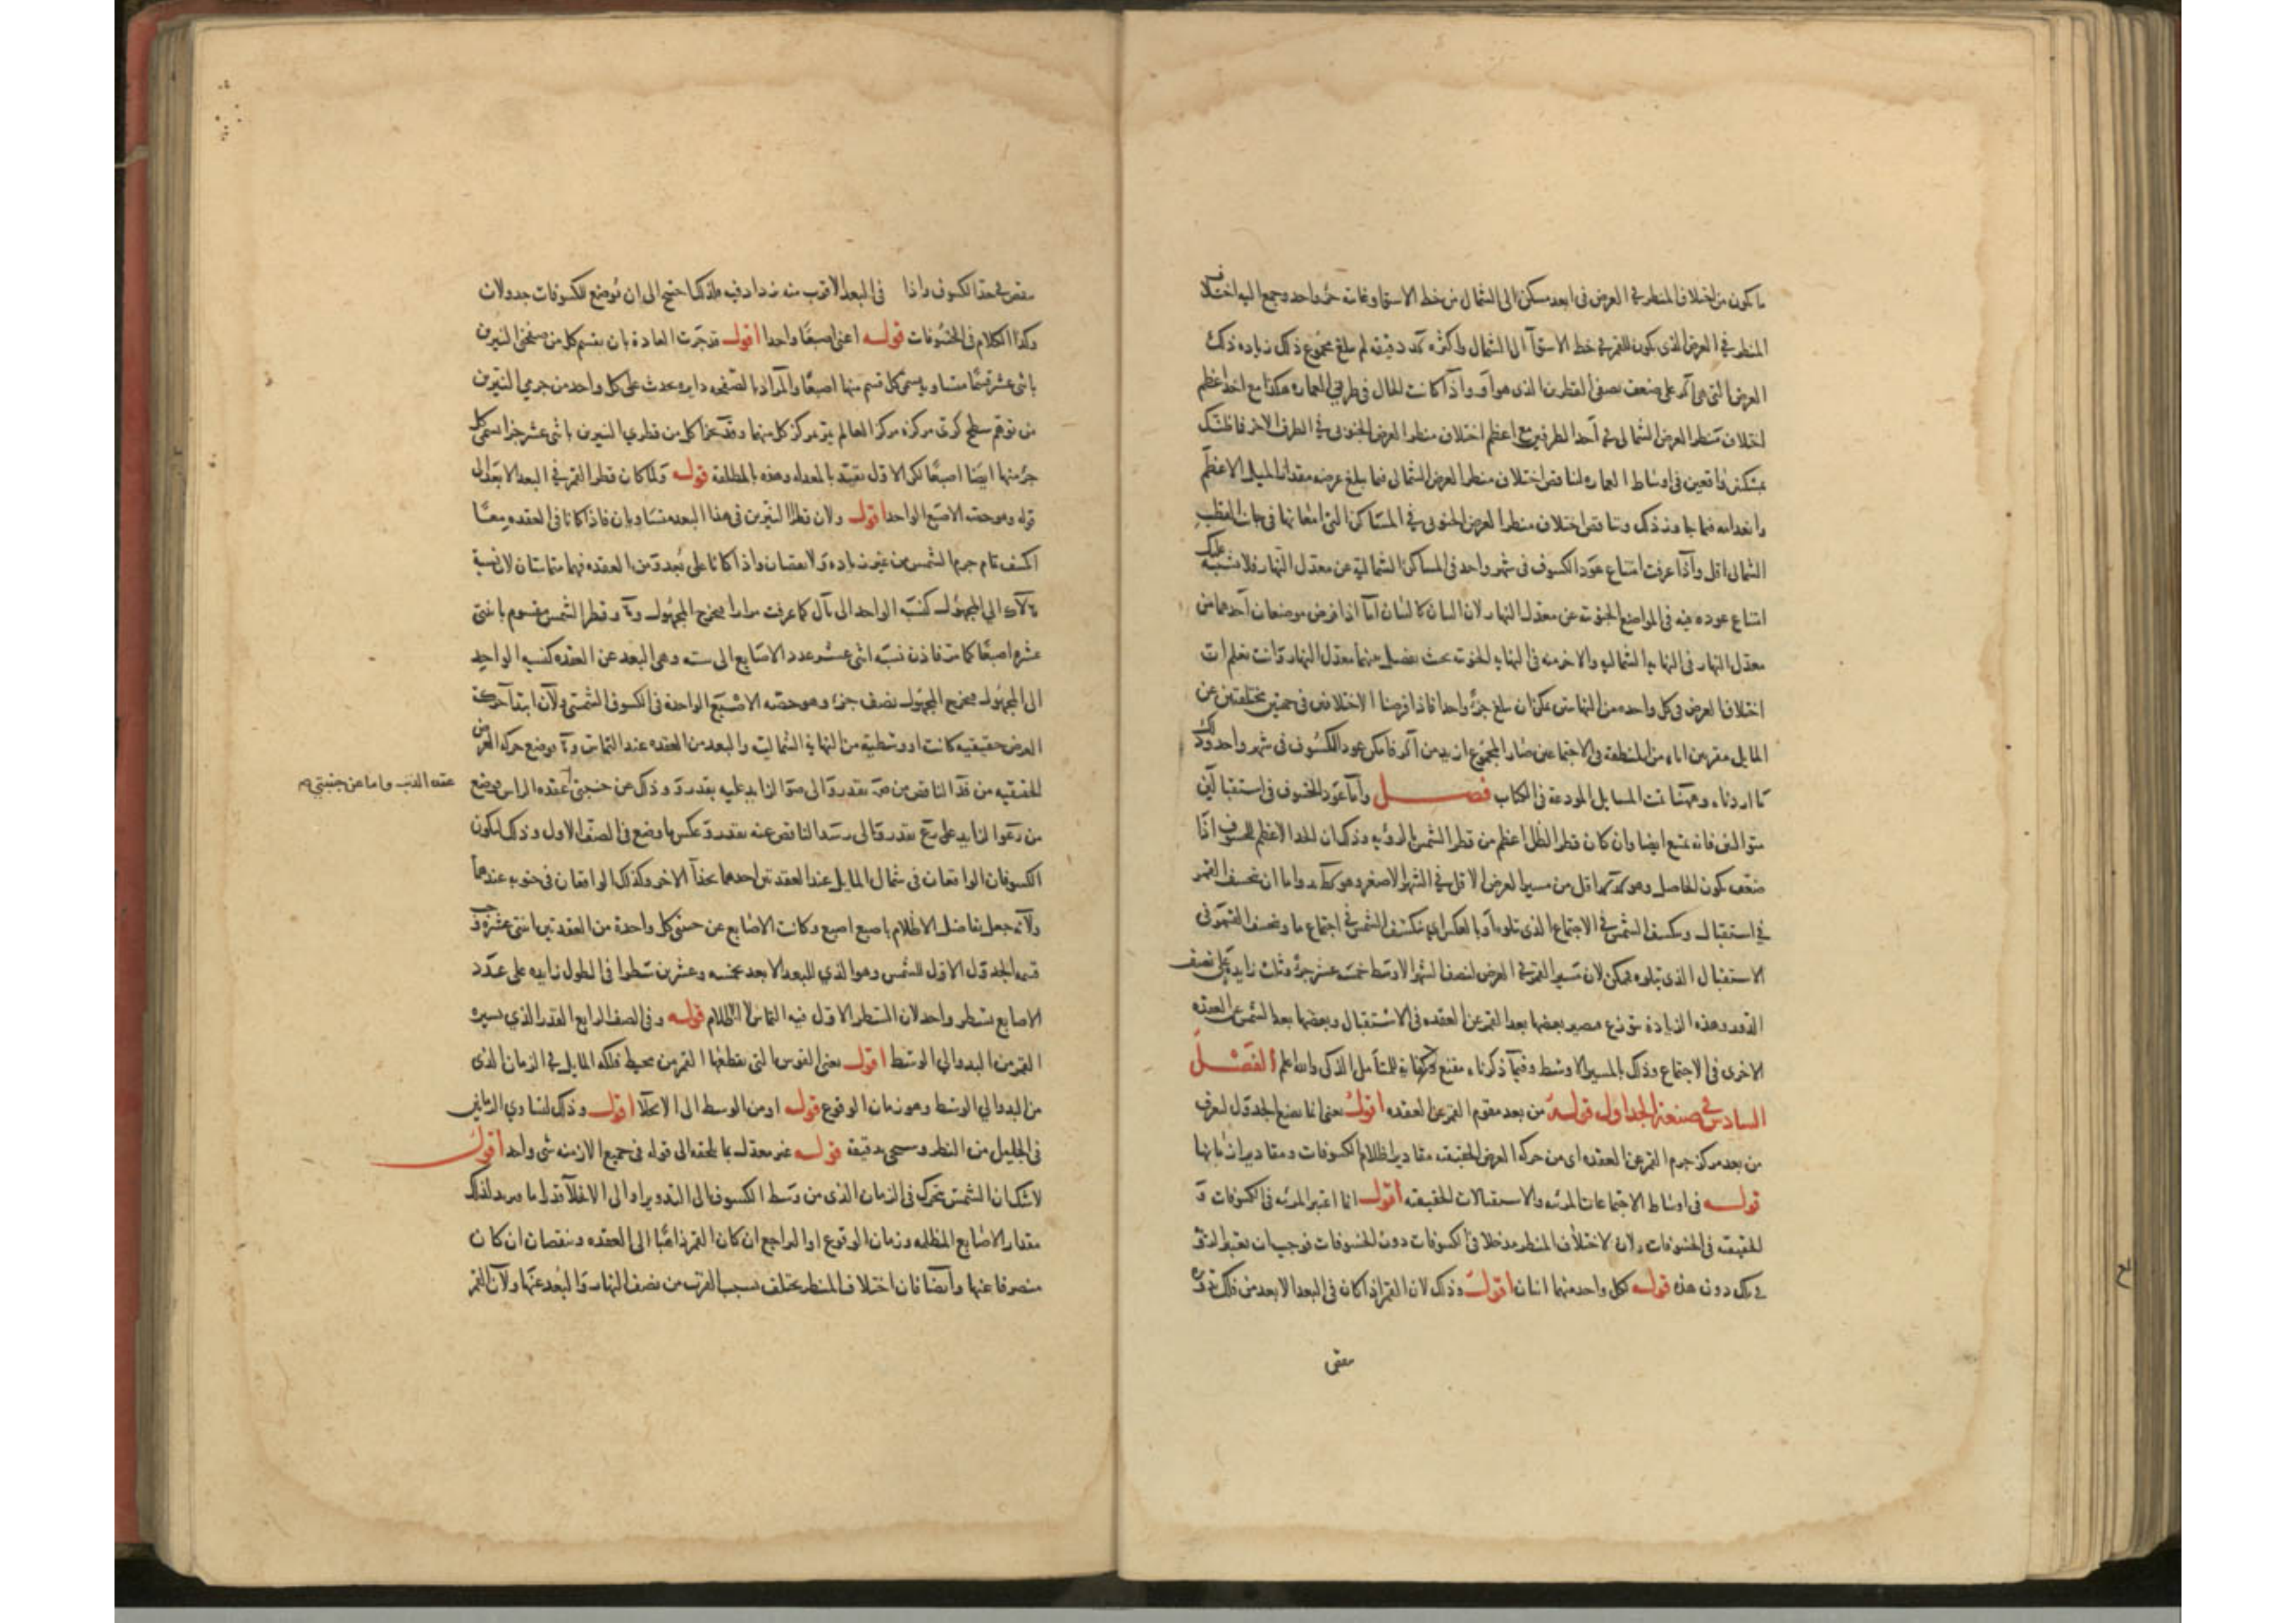 ما يكون من اختلاف المنظر في العرض في ابعد مسكن الى الشمال من خط الاستوا وغايته جزء واحد وجمع اليه اختلاف
المنظر في العرض الذي يكون للقمر في خط الاستوآ الى الشمال واكثره كه دقيقه لم يبلغ مجموع ذلك زياده ذلك
العرض التي هي على ضعف نصفي القطرين الذي هو واذا كانت الحال في طرفي العماره هكذا مع اخذ اعظم
اختلاف منظر العرض الشمالي في أحد الطرفين مع اعظم اختلاف منظر العرض الجنوبي في الطرف الاخر فما ظنك
بمسكنين واقعين في اوساط العماره لتناقص اختلاف منظر العرض الشمالي فيما يبلغ عرضه مقدار الميل الاعظم
وانعدامه فيما جاوز ذلك وتناقص اختلاف منظر العرض الجنوبي في المساكن التي امعانها في جانب القطب
الشمالي اقل واذا عرفت امتناع عود الكسوف في شهر واحد في المساكن الشمالية عن معدل النهار فلا يشتبه عليك
امتناع عوده فيه في المواضع الجنوبية عن معدل النهار لان البيان كالبيان اما اذا فرض موضعان أحدهما من
معدل النهار في النهاية الشماليه والاخر منه في النهاية الجنوبيه بحيث يفصل بينهما معدل النهار وانت تعلم ان
اختلاف العرض في كل واحده من النهايتين يمكن ان يبلغ جزءً واحدا فاذا فرضنا الاختلافين في جهتين مختلفتين عن
المايل مقربين اياه من المنطقه في الاجتماعين صار المجموع ازيد من فامكن عود الكسوف في شهر واحد وذلك
ما اردناه وههنا تمت المسايل المودعة في الكتاب فصل وأما عود الخسوف في استقبالين
متواليين فانه يمتنع ايضا وان كان قطر الظل اعظم من قطر الشمس بالرؤيه وذلك ان الحد الاعظم للخسوف اذا
ضعف يكون الحاصل وهو اقل من مسير العرض الاقل في الشهر الاصغر وهو واما ان يخسف القمر
في استقبال وينكسف الشمس في الاجتماع الذي يتلوه او بالعكس اي تنكسف الشمس في اجتماع ما ويخسف القمر في
الاستقبال الذي يتلوه فيمكن لان مسير القمر في العرض لنصف الشهر الاوسط خمسة عشر جزءً وثلث زايده على نصف
الدور وهذه الزيادة تتوزع فيصير بعضها بعد القمر عن العقده في الاستقبال وبعضها بعد الشمس عن العقده
الاخرى في الاجتماع وذلك بالمسير الاوسط وفيما ذكرناه مقنع وكفاية للمتأمل الذكي والله اعلم الفصل
السادس في صنعة الجداول قوله من بعد مقوم القمر عن العقده اقول يعني انا نضع الجدول لعرف
من بعد مركز جرم القمر عن العقده اي من حركه العرض الحقيقيه مقادير اظلام الكسوفات ومقادير ازمانها
قوله في اوساط الاجتماعات المرئيه والاستقبالات الحقيقيه اقول انما اعتبر المرئيه في الكسوفات و
الحقيقيه في الخسوفات لان لاختلاف المنظر مدخلا في الكسوفات دون الخسوفات فوجب ان يعتبر المرئي
في تلك دون هذه قوله لكل واحد منهما اثنان اقول وذلك لان القمر اذا كان في البعد الابعد من فلك تدويره
ينقص
ينقص في هذا الكسوف واذا في البعد الاقرب منه يزداد فيه فلذلك احتيج الى ان توضع للكسوفات جدولان
وكذا الكلام في الخسوفات قوله اعني اصبعًا واحدا اقول قد جرت العادة بان يقسم كل من صفحتي النيرين
باثني عشر قسمًا متساويه يسمى كل قسم منها اصبعًا والمراد بالصفحه دايره تحدث على كل واحد من جرمي النيرين
من توهم سطح كري مركزه مركز العالم يمر بمركز كل منهما وقد يجزا كل من قطري النيرين باثني عشر جزءا يسمى كل
جزء منها ايضا اصبعًا لكن الاول تقيد بالمعدله وهذه بالمطلقة قوله ولما كان قطر القمر في البعد الابعد الى
قوله وهو حصة الاصبع الواحد اقول ولان قطرا النيرين في هذا البعد متساويان فاذا كانا في العقده معًا
انكسف تمام جرم الشمس من غير زياده ولا نقصان واذا كانا على بعد و من العقده فهما متماسان لان نسبة
الى المجهول كنسبة الواحد الى كما عرفت مرارا يخرج المجهول و وقطر الشمس مقسوم باثنتي
عشره اصبعًا كما مر فاذن نسبة اثني عشر عدد الاصابع الى سته وهي البعد عن العقده كنسبه الواحد
الى المجهول يخرج المجهول نصف جزء وهو حصه الاصبع الواحدة في الكسوف الشمسي ولان ابتدا حركة
العرض حقيقيه كانت او وسطية من النهاية الشمالية والبعد من العقده عند التماس و يوضع حركه العرض
الحقيقيه من الناقص من بقدر و الى الزايد عليه بقدر و وذلك عن جنبتي عقده الراس ويوضع
عقده الذنب واما عن جنبتي م
من الزايد على بقدر و الى الناقص عنه بقدر و عكس ما وضع في الصف الاول وذلك ليكون
الكسوفان الواقعان في شمال المايل عند العقدتين احدهما بحذآ الاخر وكذلك الواقعان في جنوبه عندهما
ولانه جعل تفاضل الاظلام باصبع اصبع وكانت الاصابع عن جنبتي كل واحدة من العقدتين اثنتي عشرة وجب
قسمه الجدول الاول للشمس وهو الذي للبعد الابعد بخمسه وعشرين سطرا في الطول زايده على عدد
الاصابع بسطر واحد لان السطر الاول فيه التماس لا الظلام قوله وفي الصف الرابع القدر الذي يسيره
القمر من البدو الى الوسط اقول يعني القوس التي يقطعها القمر من محيط فلكه المايل في الزمان الذي
من البدو الى الوسط وهو زمان الوقوع قوله او من الوسط الى الانجلا اقول وذلك لتساوي الزمانين
في الجليل من النظر وسيجي تدقيقه قوله غير معدل بما يلحقه الى قوله في جميع الازمنه شي واحد اقول
لا شك ان الشمس يتحرك في الزمان الذي من وسط الكسوف الى او الى الانجلا قدرا ما ويزيد لذلك
مقدار الاصابع المظلمه وزمان الوقوع او التراجع ان كان القمر ذاهبًا الى العقده وينقصان ان كان
منصرفا عنها وأيضا فان اختلاف المنظر يختلف بسبب القرب من نصف النهار والبعد عنها ولان القمر